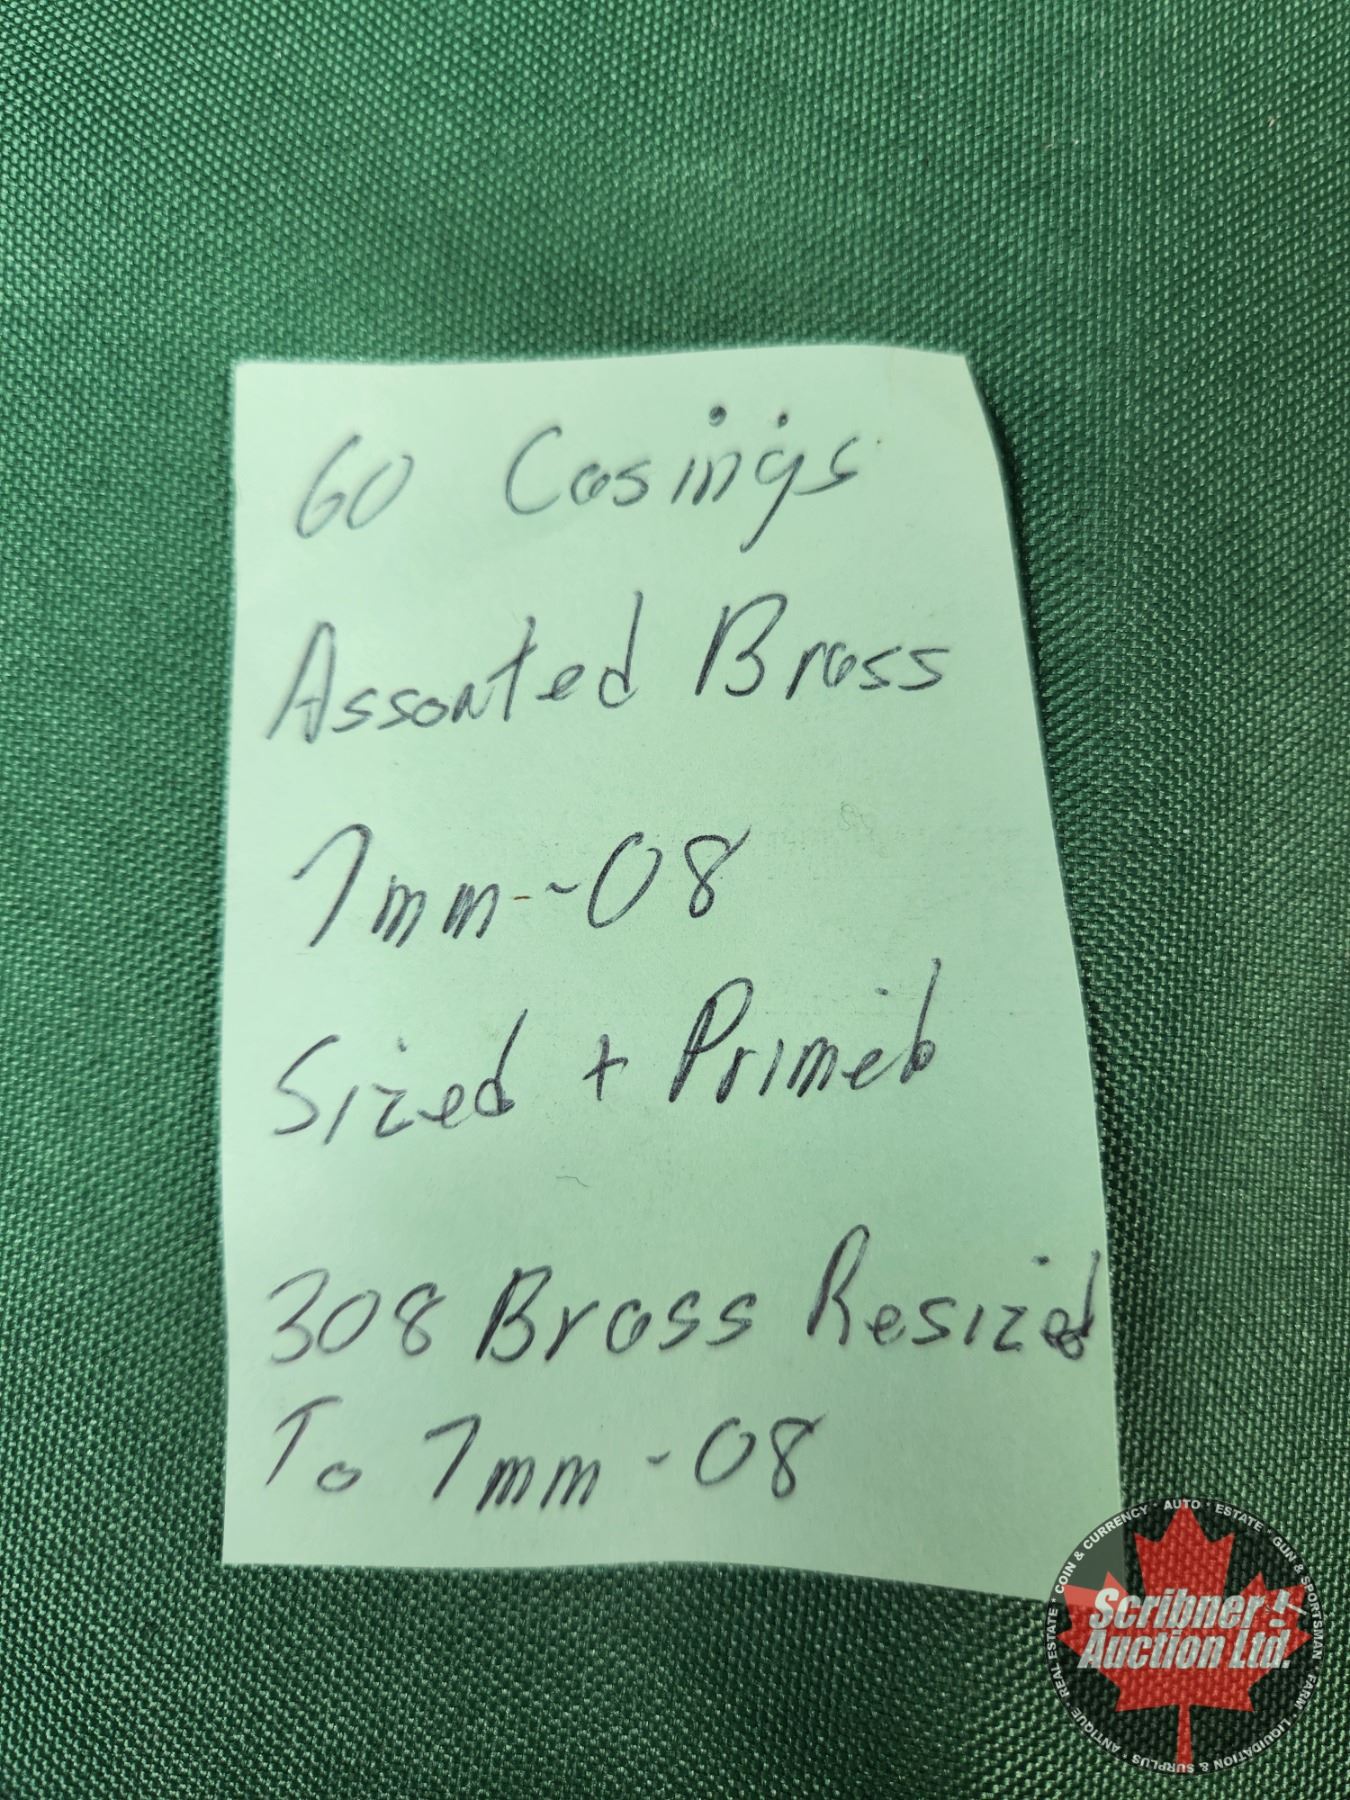 60 Casings
Assorted Brass
7mm-08
Sized + Primed
308 Brass Resized
To 7mm-08
Scribner Auction Ltd.
ANTIQUE · REAL ESTATE · COIN & CURRENCY · AUTO · ESTATE · GUN & SPORTSMAN · FARM · LIQUIDATION & SURPLUS ·